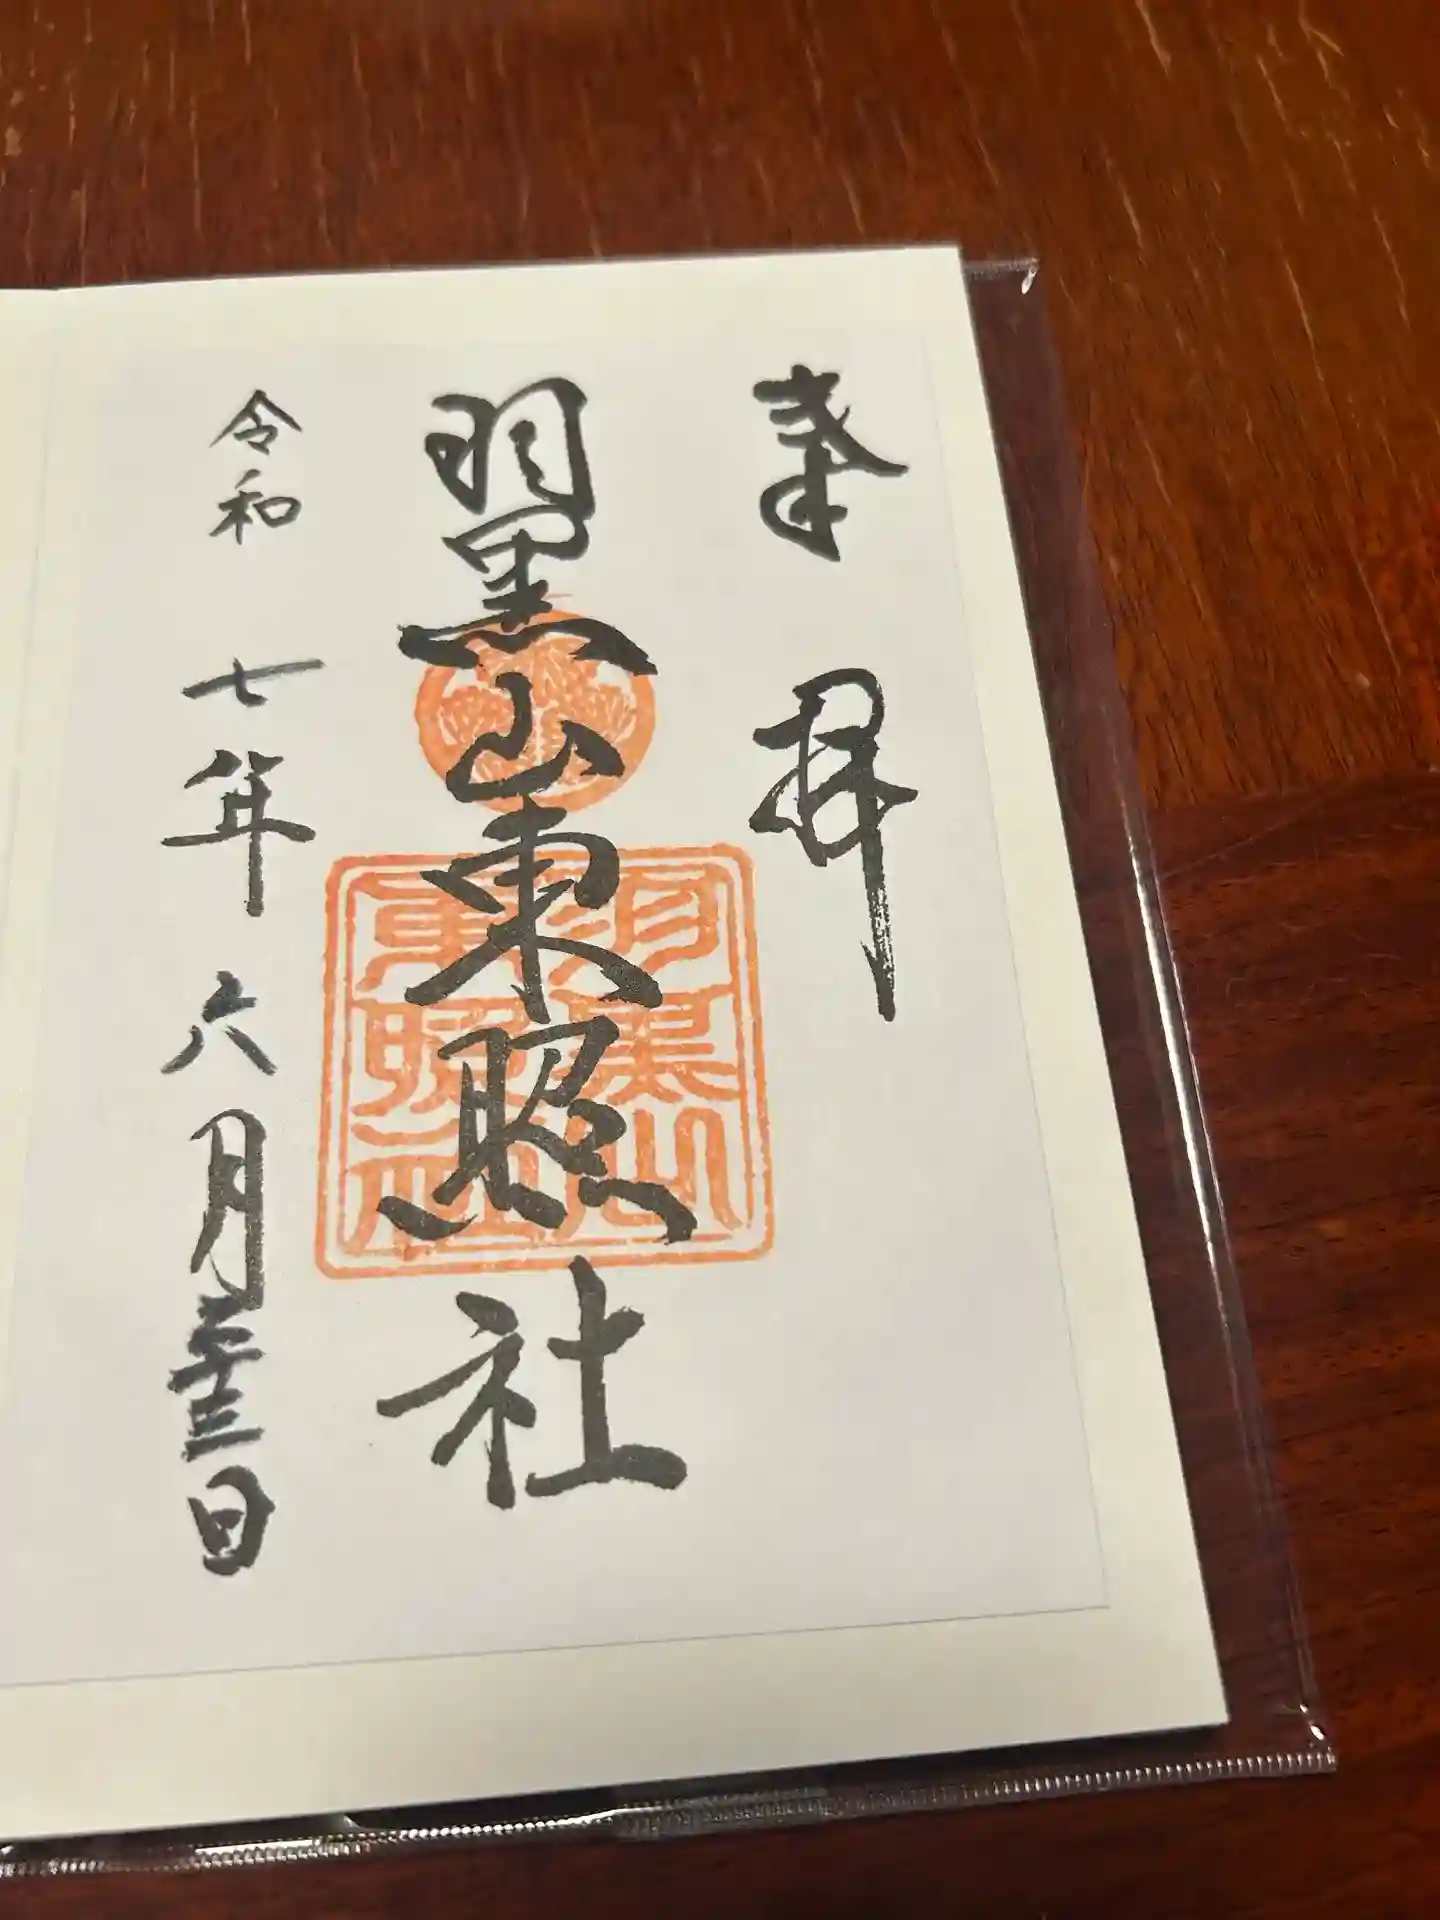 奉拝
羽黒山東照社
羽黒山
東照社
令和七年六月二十三日